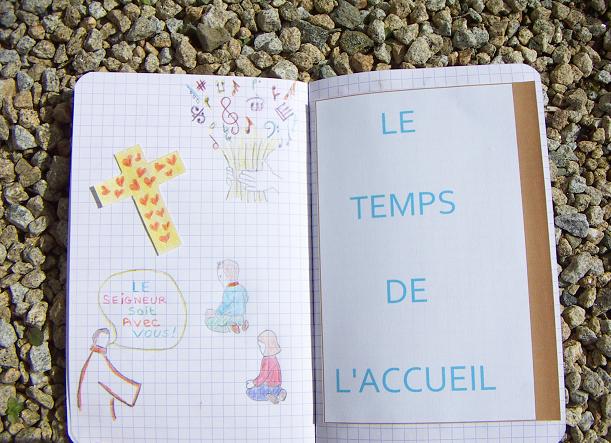 LE
SEIGNEUR
Soit
Avec
VOUS!
LE
TEMPS
DE
L'ACCUEIL